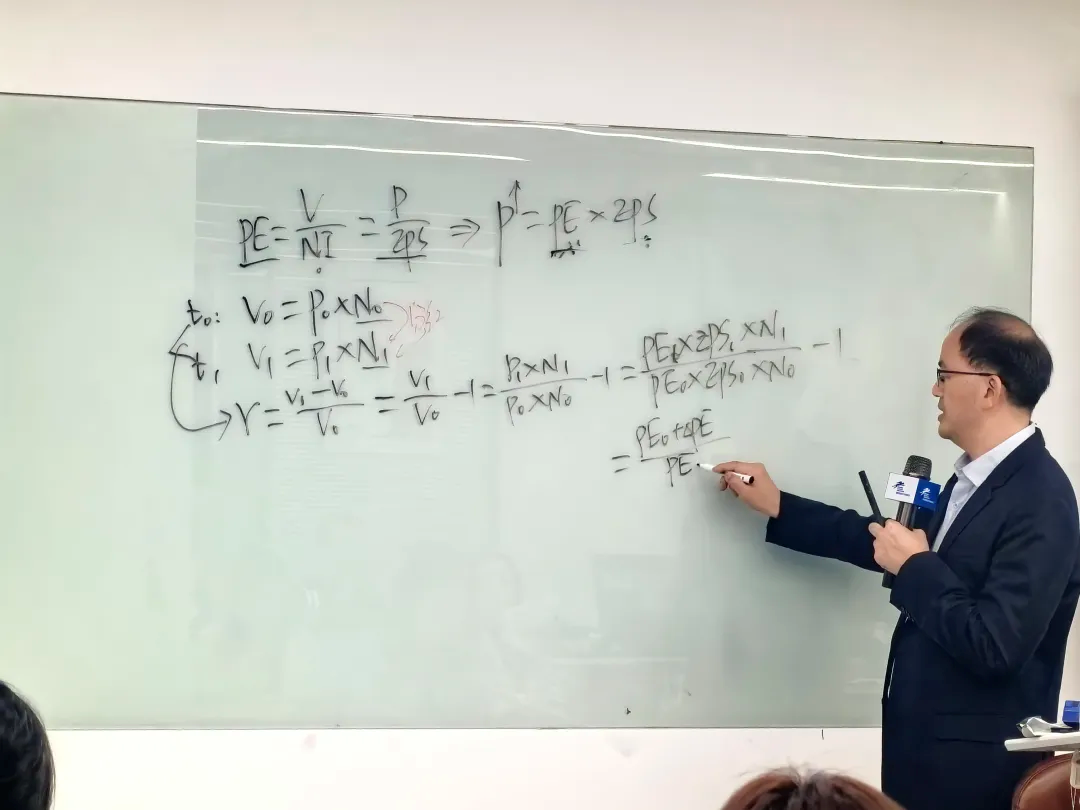 PE = V/NI = P/EPS ⇒ P↑ = PE × EPS
t₀: V₀ = P₀ × N₀
t₁ V₁ = P₁ × N₁
r = (V₁ − V₀)/V₀ = V₁/V₀ − 1 = (P₁ × N₁)/(P₀ × N₀) − 1 = (PE₁ × EPS₁ × N₁)/(PE₀ × EPS₀ × N₀) − 1
= (PE₀ + ΔPE)/PE